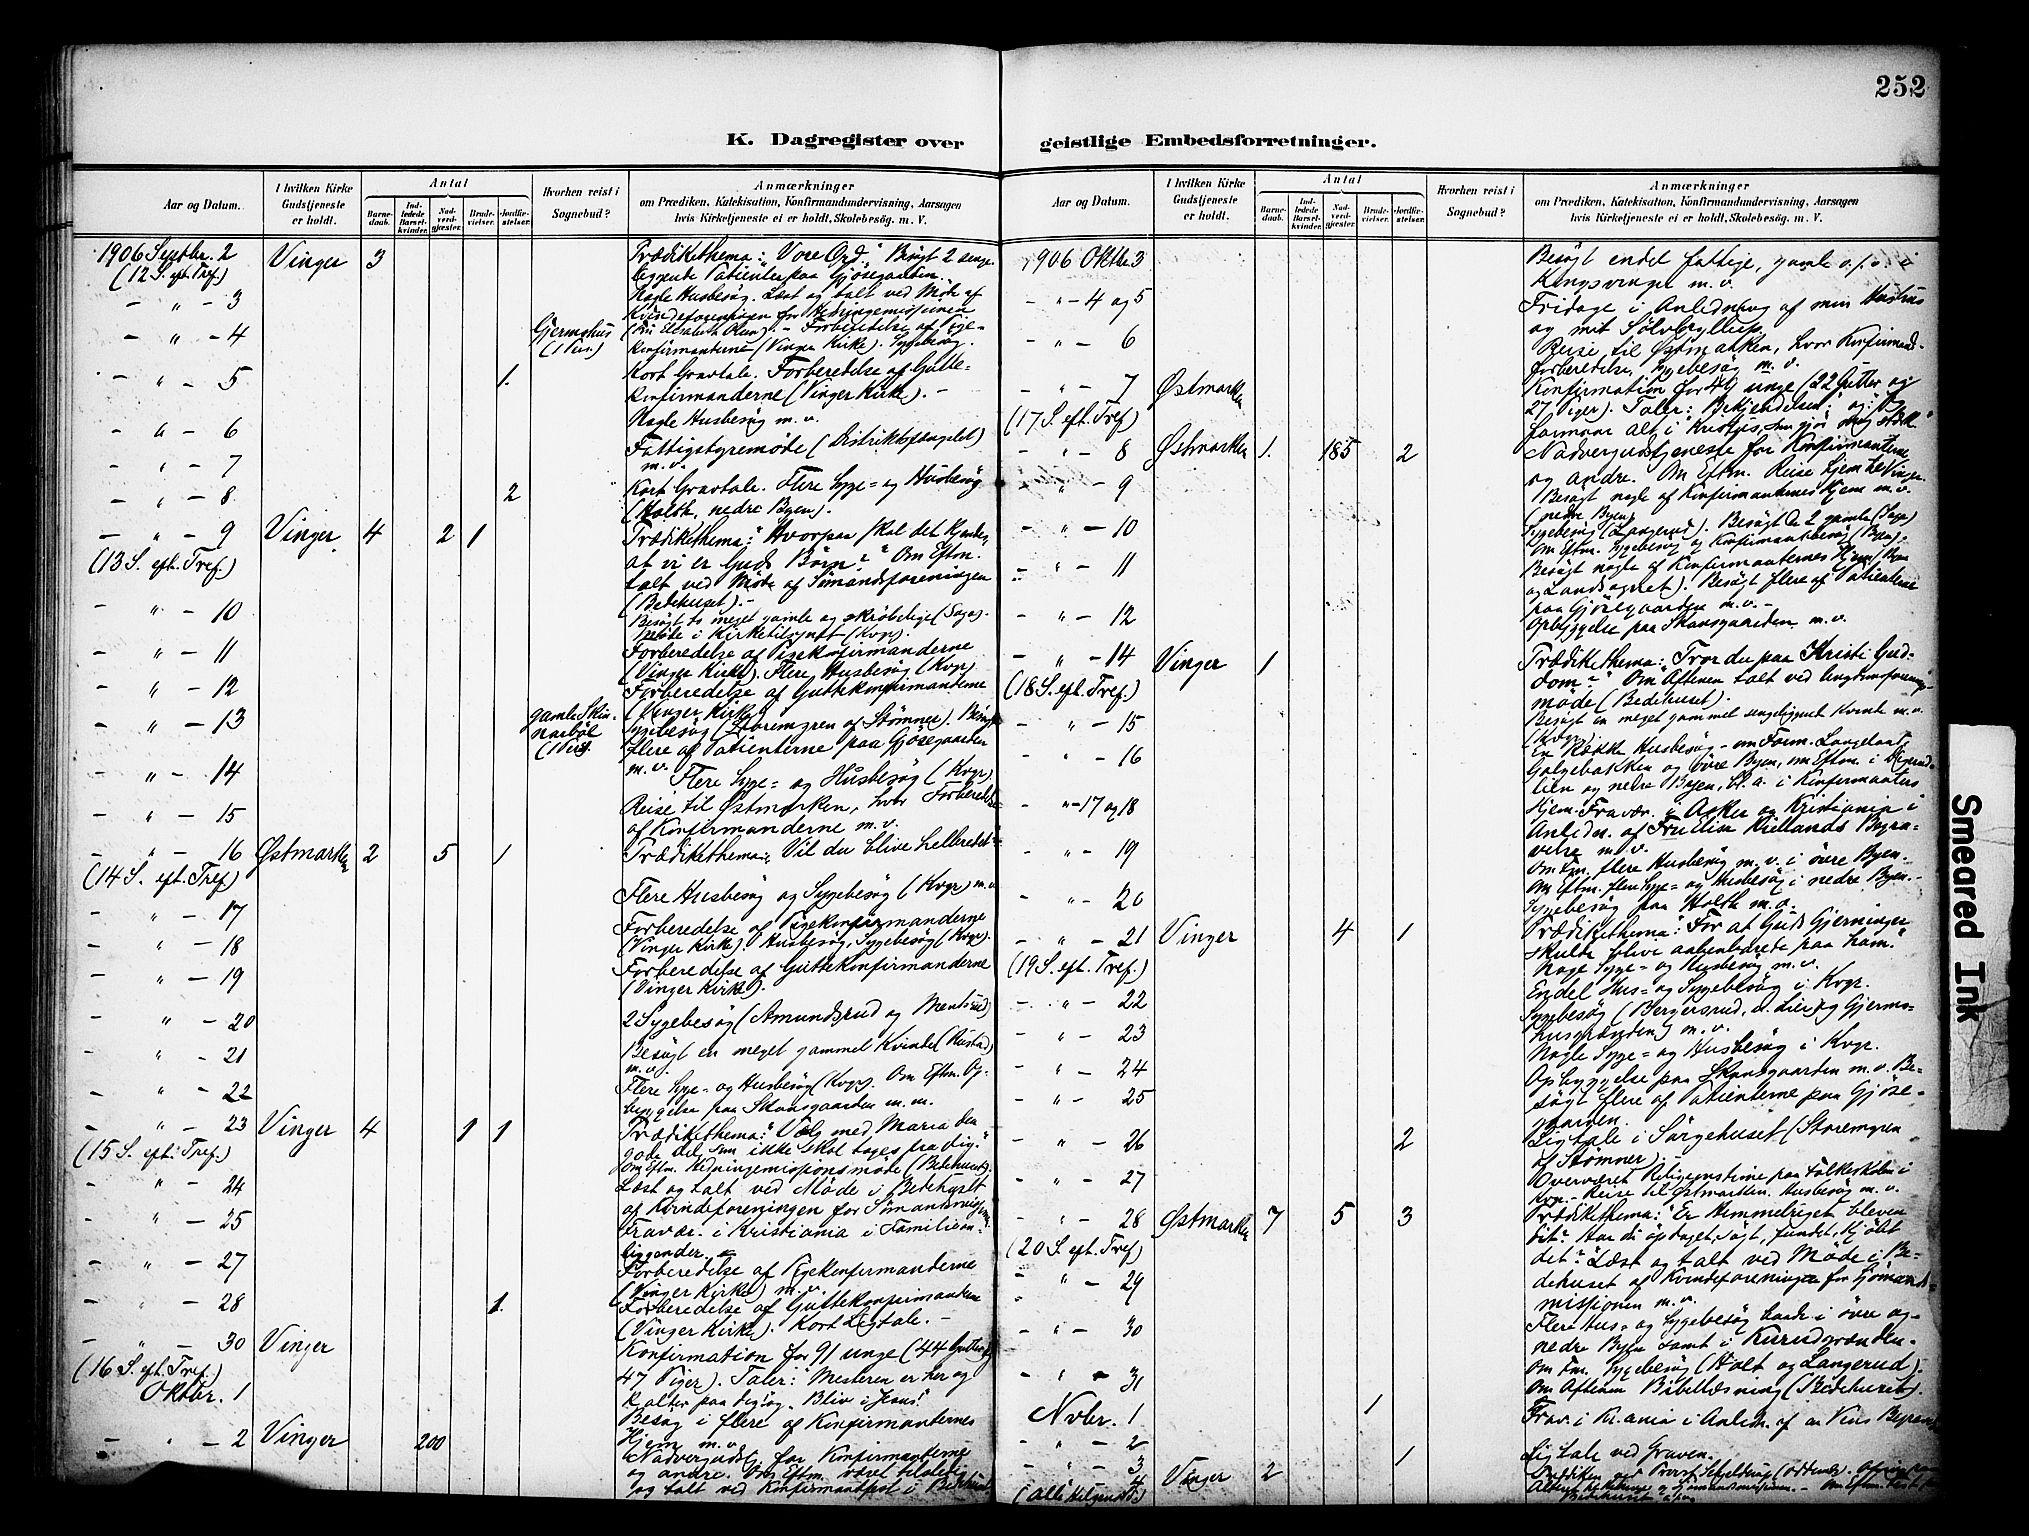 252
K. Dagregister over
geistlige Embedsforretninger.
Aar og Datum.
I hvilken Kirke Gudstjeneste er holdt.
Antal
Barnedaab.
Indledede Barselkvinder.
Nadverdgjæster.
Brudevielser.
Jordfæstelser.
Hvorhen reist i Sognebud?
Anmærkninger
om Prædiken, Katekisation, Konfirmandundervisning, Aarsagen
hvis Kirketjeneste ei er holdt, Skolebesøg. m. V.
1906 Septbr. 2 Vinger 3 Prædikethema: "Vore Ord." Besøgt 2 senge-
(12 S. eft. Tref.) liggende Patienter paa Gjøsegaarden.
" 3 Nogle Husbesøg. Læst og talt ved Møde af
Kvindeforeningen for Hedningemissionen
" 4 Gjermshus (1 Pers.) Forberedelse af Pige-
konfirmanderne (Vinger Kirke). Sygebesøg.
" 5 1. Kort Gravtale. Forberedelse af Gutte-
konfirmanderne (Vinger Kirke). -
" 6 Nogle Husbesøg m. v.
" 7 Fattigstyremøde (Distriktsfængslet)
m. v.
" 8 2 Kort Gravtale. Flere Syge= og Husbesøg
(Holth, nedre Byen).
" 9 Vinger 4 2 1 Prædikethema: "Hvorpaa skal det kjendes,
(13 S. eft. Tref.) at vi er Guds Børn?" Om Eftm.
talt ved Møde af Sømandsforeningen
(Bedehuset). -
" 10 Besøgt to meget gamle og skrøbelige
Møde i Kirketilsynet (Kvgr).
" 11 Forberedelse af Pigekonfirmanderne
(Vinger Kirke). Flere Husbesøg (Kvgr)
" 12 Forberedelse af Guttekonfirmanderne
(Vinger Kirke)
" 13 gamle Skinnarbøl (1 Pers). Sygebesøg (Storemgren af Strømner). Besøgt
flere af Patienterne paa Gjøsegaarden
m. v.
" 14 Flere Syge= og Husbesøg (Kvgr)
" 15 Reise til Østmarken, hvor Forberedelse
af Konfirmanderne m. v.
" 16 Østmarken 2 5 1 Prædikethema: "Vil du blive helbredet?"
(14 S. eft. Tref.)
" 17 Flere Husbesøg og Sygebesøg (Kvgr) m. v.
" 18 Forberedelse af Pigekonfirmanderne
(Vinger Kirke). Husbesøg, Sygebesøg (Kvgr).
" 19 Forberedelse af Guttekonfirmanderne
(Vinger Kirke).
" 20 2 Sygebesøg (Amundsrud og
" 21 Besøgt en meget gammel Kvinde (Rustad)
m. v.
" 22 Flere Syge= og Husbesøg (Kvgr). Om Eftm. Op-
byggelse paa Skansgaarden m. m.
" 23 Vinger 4 1 1 Prædikethema: "Vælg med Maria den
(15 S. eft. Tref.) gode del, som ikke skal tages fra dig."
Om Eftm. Hedningemissionsmøde (Bedehuset).
" 24 Læst og talt ved Møde i Bedehuset
af Kvindeforeningen for Sømandsmissionen.
" 25 Fravær. i Kristiania i Familien-
liggender
" 27 Forberedelse af Pigekonfirmanderne
(Vinger Kirke) m. v.
" 28 1. Forberedelse af Guttekonfirmanderne
(Vinger Kirke). Kort Ligtale. -
" 30 Vinger Konfirmation for 91 unge (44 Gutter og
(16 S. eft. Tref.) 47 Piger). Taler: "Mesteren er her og
kalder paa dig" og "Bliv i Jesus!"
Oktbr. 1 Besøg i flere af Konfirmanternes
Hjem m. v.
" 2 Vinger 200 Nadvergudstj. for Konfirmanterne
og andre. Om Eftm. været tilstede
og talt ved Konfirmantfest i Bedehuset
Aar og Datum.
I hvilken Kirke Gudstjeneste er holdt.
Antal
Barnedaab.
Indledede Barselkvinder.
Nadverdgjæster.
Brudevielser.
Jordfæstelser.
Hvorhen reist i Sognebud?
Anmærkninger
om Prædiken, Katekisation, Konfirmandundervisning, Aarsagen
hvis Kirketjeneste ei er holdt, Skolebesøg. m. V.
1906 Oktbr. 3 Besøgt endel fattige, gamle o. s. v. i
Kongsvinger m. v.
" 4 og 5 Fridage i Anledning af min Hustrus
og mit Sølvbryllup.
" 6 Reise til Østmarken, hvor Konfirmand-
forberedelse, Sygebesøg m. v.
" 7 Østmarken Konfirmation for 49 unge (22 Gutter og
(17 S. eft. Tref) 27 Piger). Taler: "Bekjendelsen" og: "Jeg
formaar alt i Kristus, som gjør mig stærk"
" 8 Østmarken 1. 185 2 Nadvergudstjeneste for Konfirmanterne
og andre. Om Eftm. Reise hjem til Vinger.
" 9 Besøgt nogle af Konfirmanternes Hjem m. v.
(nedre Byen)
" 10 Sygebesøg (Langerud). Besøgt de 2 gamle
Om Eftm. Sygebesøg og Konfirmantbesøg (Byen).
" 11 Besøgt nogle af Konfirmanternes Hjem (Byen
og Landsognet). Besøgt flere af Patienterne
paa Gjøsegaarden m. v. -
" 12 Opbyggelse paa Skansgaarden m. v.
" 14 Vinger 1 Prædikethema: "Tror du paa Kristi Gud-
(18 S. eft. Tref.) dom?" Om Aftenen talt ved Ungdomsforenings-
møde (Bedehuset).
" 15 Besøgt en meget gammel sengeliggende Kvinde m. v.
(Kvgr).
" 16 En Række Husbesøg - om Form. Langeland,
Galgebakken og øvre Byen, om Eftm. i
lien og nedre Byen, bl. a. i Konfirmanters
Hjem.
" 17 og 18 Fravær. i Asker og Kristiania i
Anledn. af Frøken Kiellands Begra-
velse m. v.
" 19 Om Fm. flere Husbesøg m. v. i øvre Byen.
Om Eftm. flere Syge= og Husbesøg i nedre Byen. -
" 20 Sygebesøg paa Holth m. v.
" 21 Vinger 4 1 Prædikethema: "For at Guds Gjerninger
(19 S. eft. Tref.) skulde blive aabenbarede paa ham."
Nogle Syge= og Husbesøg m. v.
" 22 Endel Hus= og Sygebesøg i Kvgr.
" 23 Sygebesøg (Bergersrud, ø. Lier og Gjerms-
husgrænden) m. v.
" 24 Nogle Syge= og Husbesøg i Kvgr.
" 25 Opbyggelse paa Skansgaarden m. v. Be-
søgt flere af Patienterne paa Gjøse-
gaarden.
" 26 2 Ligtale i Sørgehuset (Storemgren
af Strømner). -
" 27 Overværet Religionstime paa Folkeskolen i
Kvgr. - Reise til Østmarken. Husbesøg m. v.
" 28 Østmarken 7 5 3 Prædikethema: "Er Himmeriget bleven
(20 S. eft. Tref) dit? Har du opdaget, søgt, fundet, kjøbt
det?"
" 29 Læst og talt ved Møde i Be-
dehuset af Kvindeforeningen for Sømands-
missionen m. v.
" 30 Flere Hus= og Sygebesøg baade i øvre og
nedre Byen samt i
" 31 Om Fm. Sygebesøg (Holt og Langerud).
Om Aftenen Bibellæsning (Bedehuset).
Novbr. 1 1 Frav. i Kr.ania i Anledn. af en Begravelse
" 2
" 3 1 Ligtale ved Graven.
" 4 Vinger 2 Prædiken ved Provst
(Alle Helgens D.)
Smeared Ink